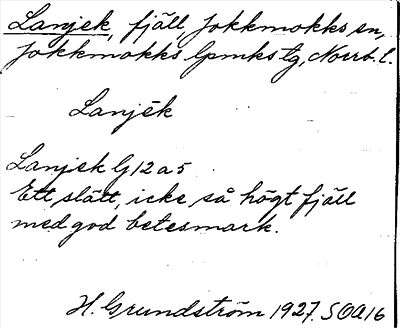 Lanjek, fjäll, Jokkmokks sn,
Jokkmokks lpmks tg, Norrb. l.
Lanjēk
Lanjek G 12 a 5
Ett slätt, icke så högt fjäll
med god betesmark.
H. Grundström 1927. SOA 16